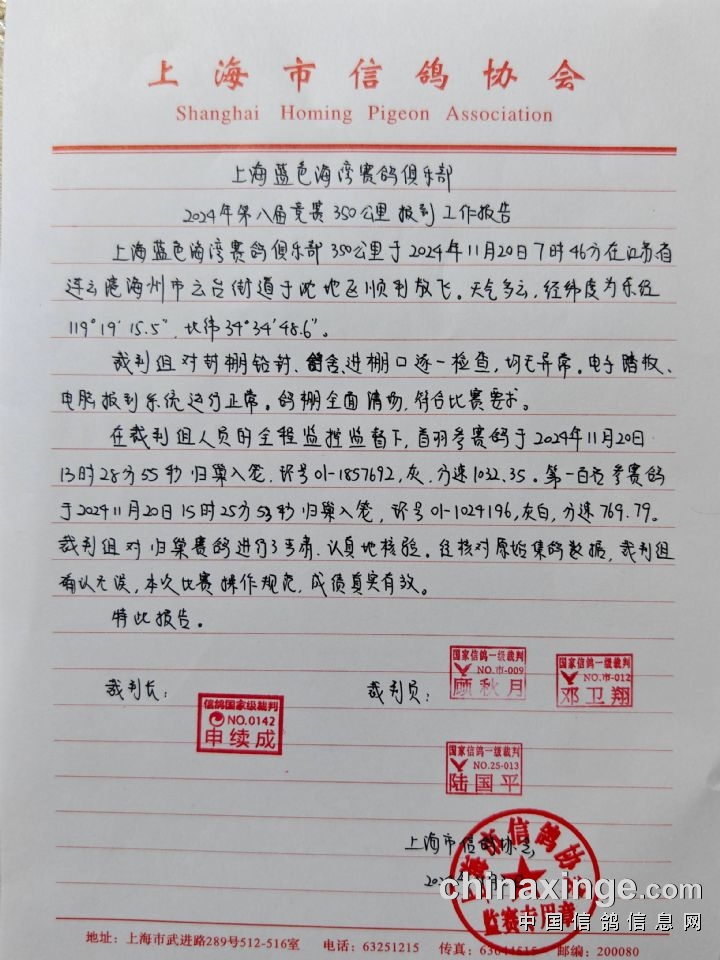 上海市信鸽协会
Shanghai Homing Pigeon Association
上海蓝色海湾赛鸽俱乐部
2024年第八届竞赛350公里报到工作报告
上海蓝色海湾赛鸽俱乐部350公里于2024年11月20日7时46分在江苏省
连云港海州市云台街道于沈地区顺利放飞。天气多云,经纬度为东经
119°19′15.5″,北纬34°34′48.6″。
裁判组对封棚铅封、鸽舍进棚口逐一检查,均无异常。电子踏板、
电脑报到系统运行正常。鸽棚全面清场,符合比赛要求。
在裁判组人员的全程监控监督下,首羽参赛鸽于2024年11月20日
13时28分55秒归巢入笼,环号01-1857692,灰,分速1032.35。第一百名参赛鸽
于2024 11月20日15时25分53秒归巢入笼,环号01-1024196,灰白,分速769.79。
裁判组对归巢赛鸽进行了严肃、认真地核验。经核对原始集鸽数据,裁判组
确认无误,本次比赛操作规范,成绩真实有效。
特此报告。
裁判长:
信鸽国家级裁判
NO.0142
申续成
裁判员:
国家信鸽一级裁判
NO.市-009
顾秋月
国家信鸽一级裁判
NO.市-012
邓卫翔
国家信鸽一级裁判
NO.25-013
陆国平
上海市信鸽协会
监赛专用章
chinaxinge.com
中国信鸽信息网
地址:上海市武进路289号512-516室 电话:63251215 传真:63644515 邮编:200080